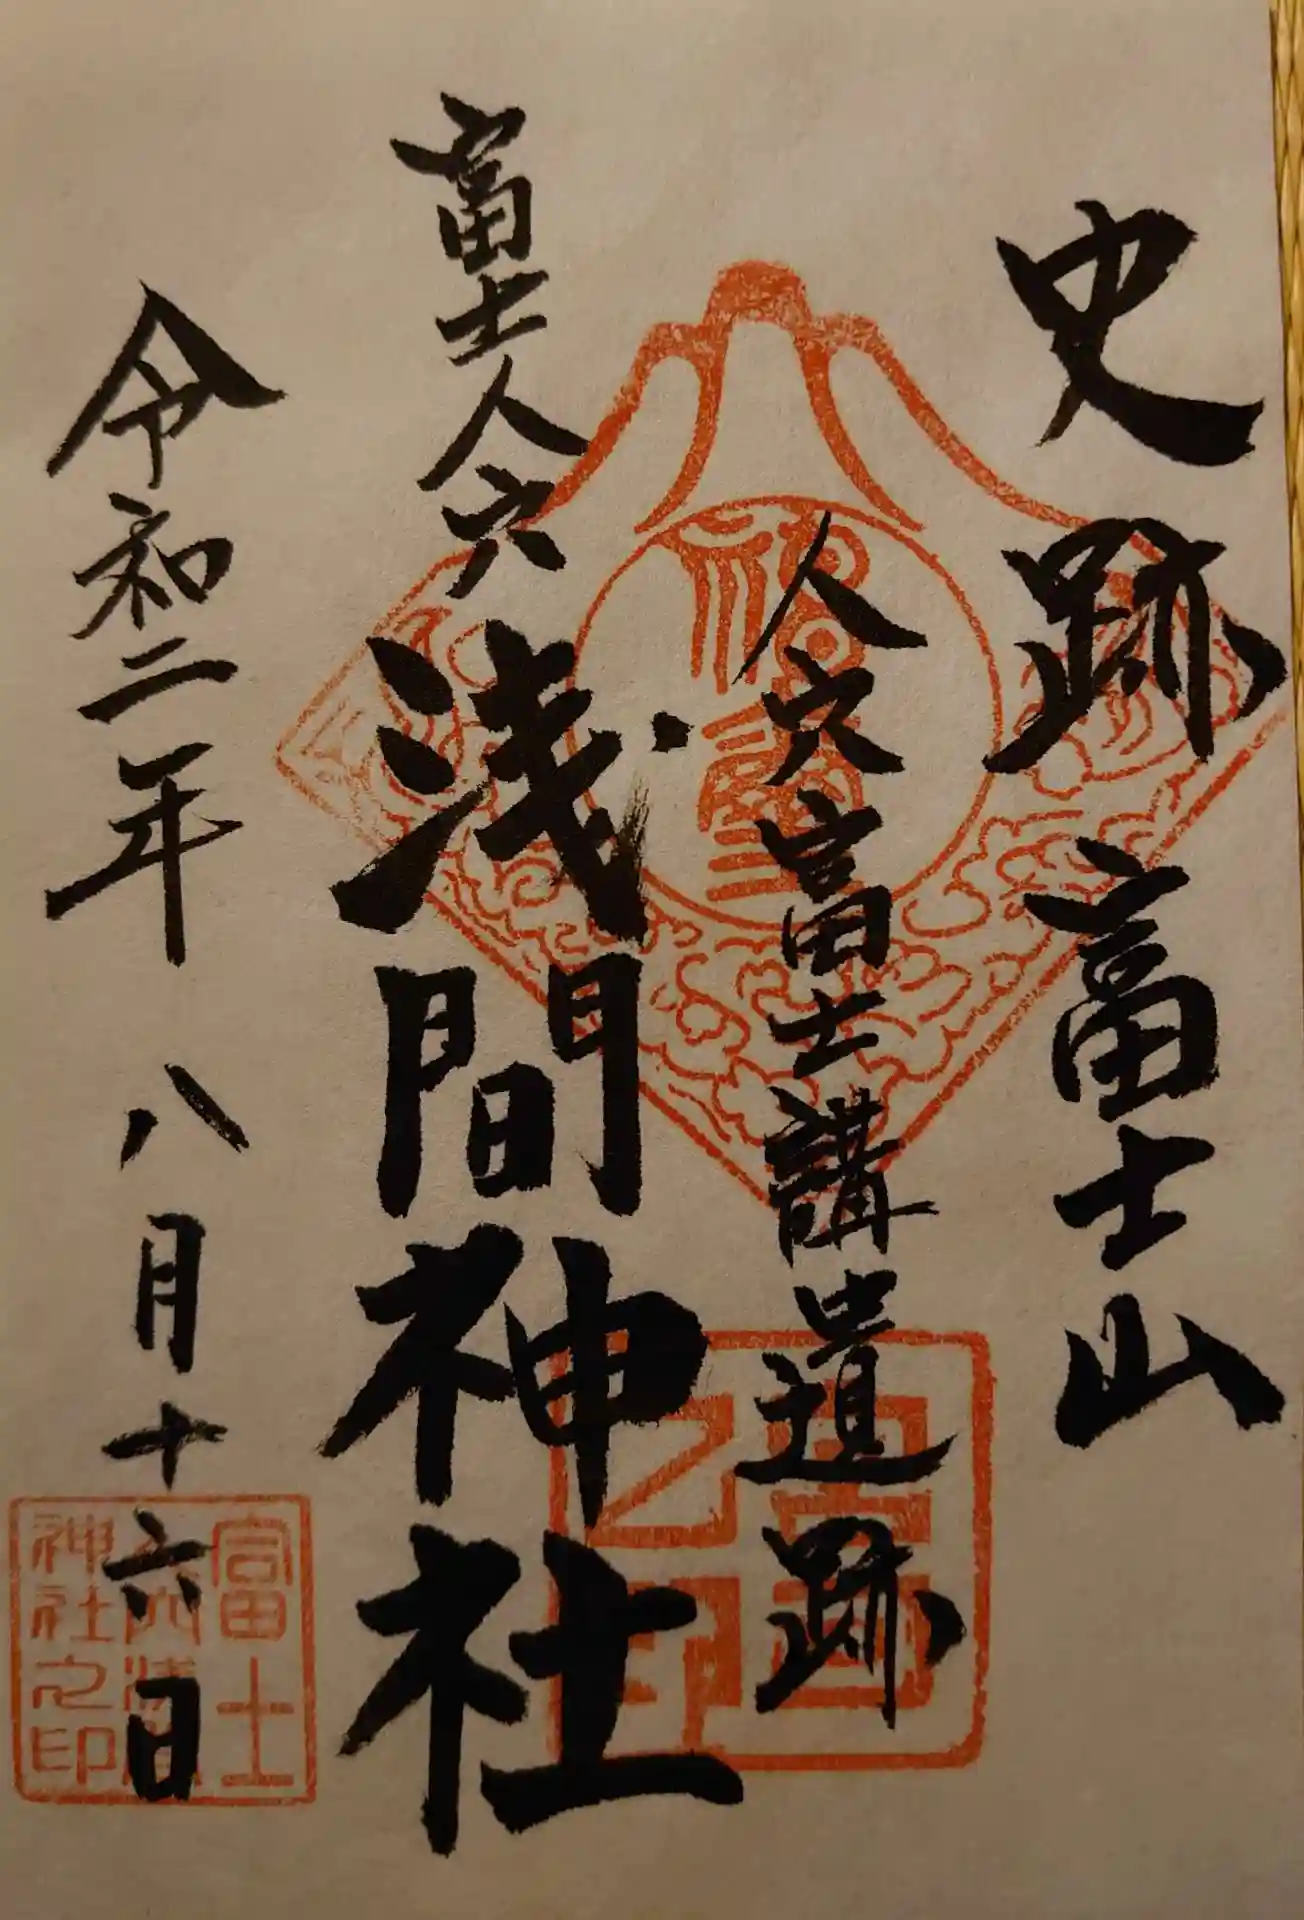 史跡 富士山
人穴富士講遺跡
富士人穴
浅間神社
令和二年 八月十六日
富士
神社之印